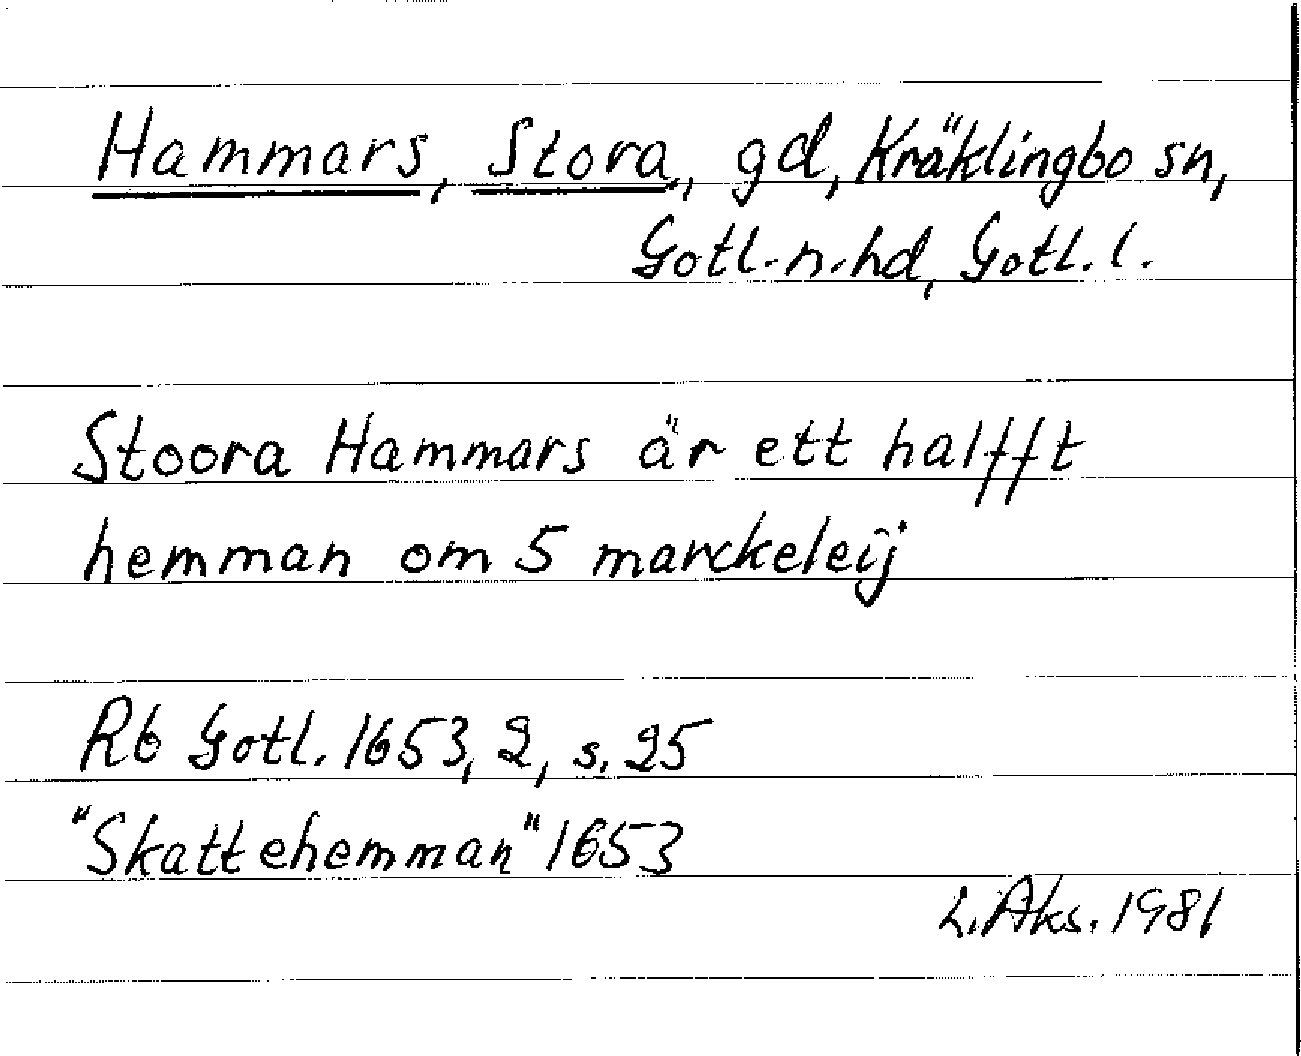 Hammars, Stora, gd, Kräklingbo sn,
Gotl. n. hd, Gotl. l.
Stoora Hammars är ett halfft
hemman om 5 marckeleij
Rb Gotl. 1653, 2, s. 25
"Skattehemman" 1653
L. Aks. 1981